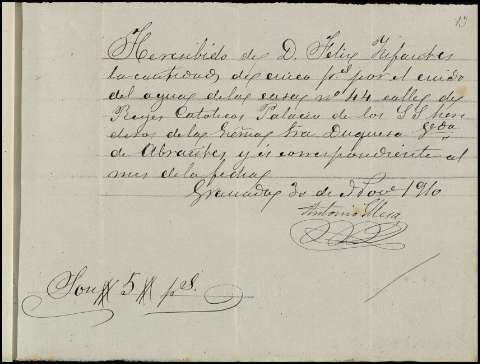 13
He recibido de D. Felix Infantes
la cantidad de cinco p.s por el cuido
del agua de la casa nº 44 calle de
Reyes Católicos Palacio de los S.S. here
deros de la Exêma Sra Duquesa
de Abrantes y es correspondiente al
mes de la fecha
Granada 30 de Nove 1910
Antonio Mesa
Son # 5 # p.s.